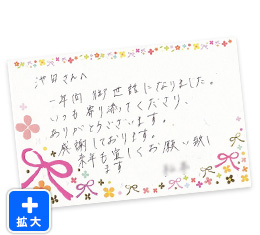 池田さんへ
一年間お世話になりました。
いつも寄り添ってくださり、
ありがとうございます。
感謝しております。
来年も宜しくお願い致し
ます
拡大